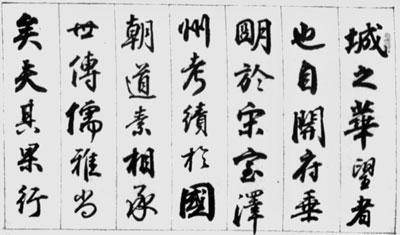 城之華望者
也自開府垂
明於宋室澤
州考績於國
朝道素相承
世傳儒雅尚
矣夫其果行